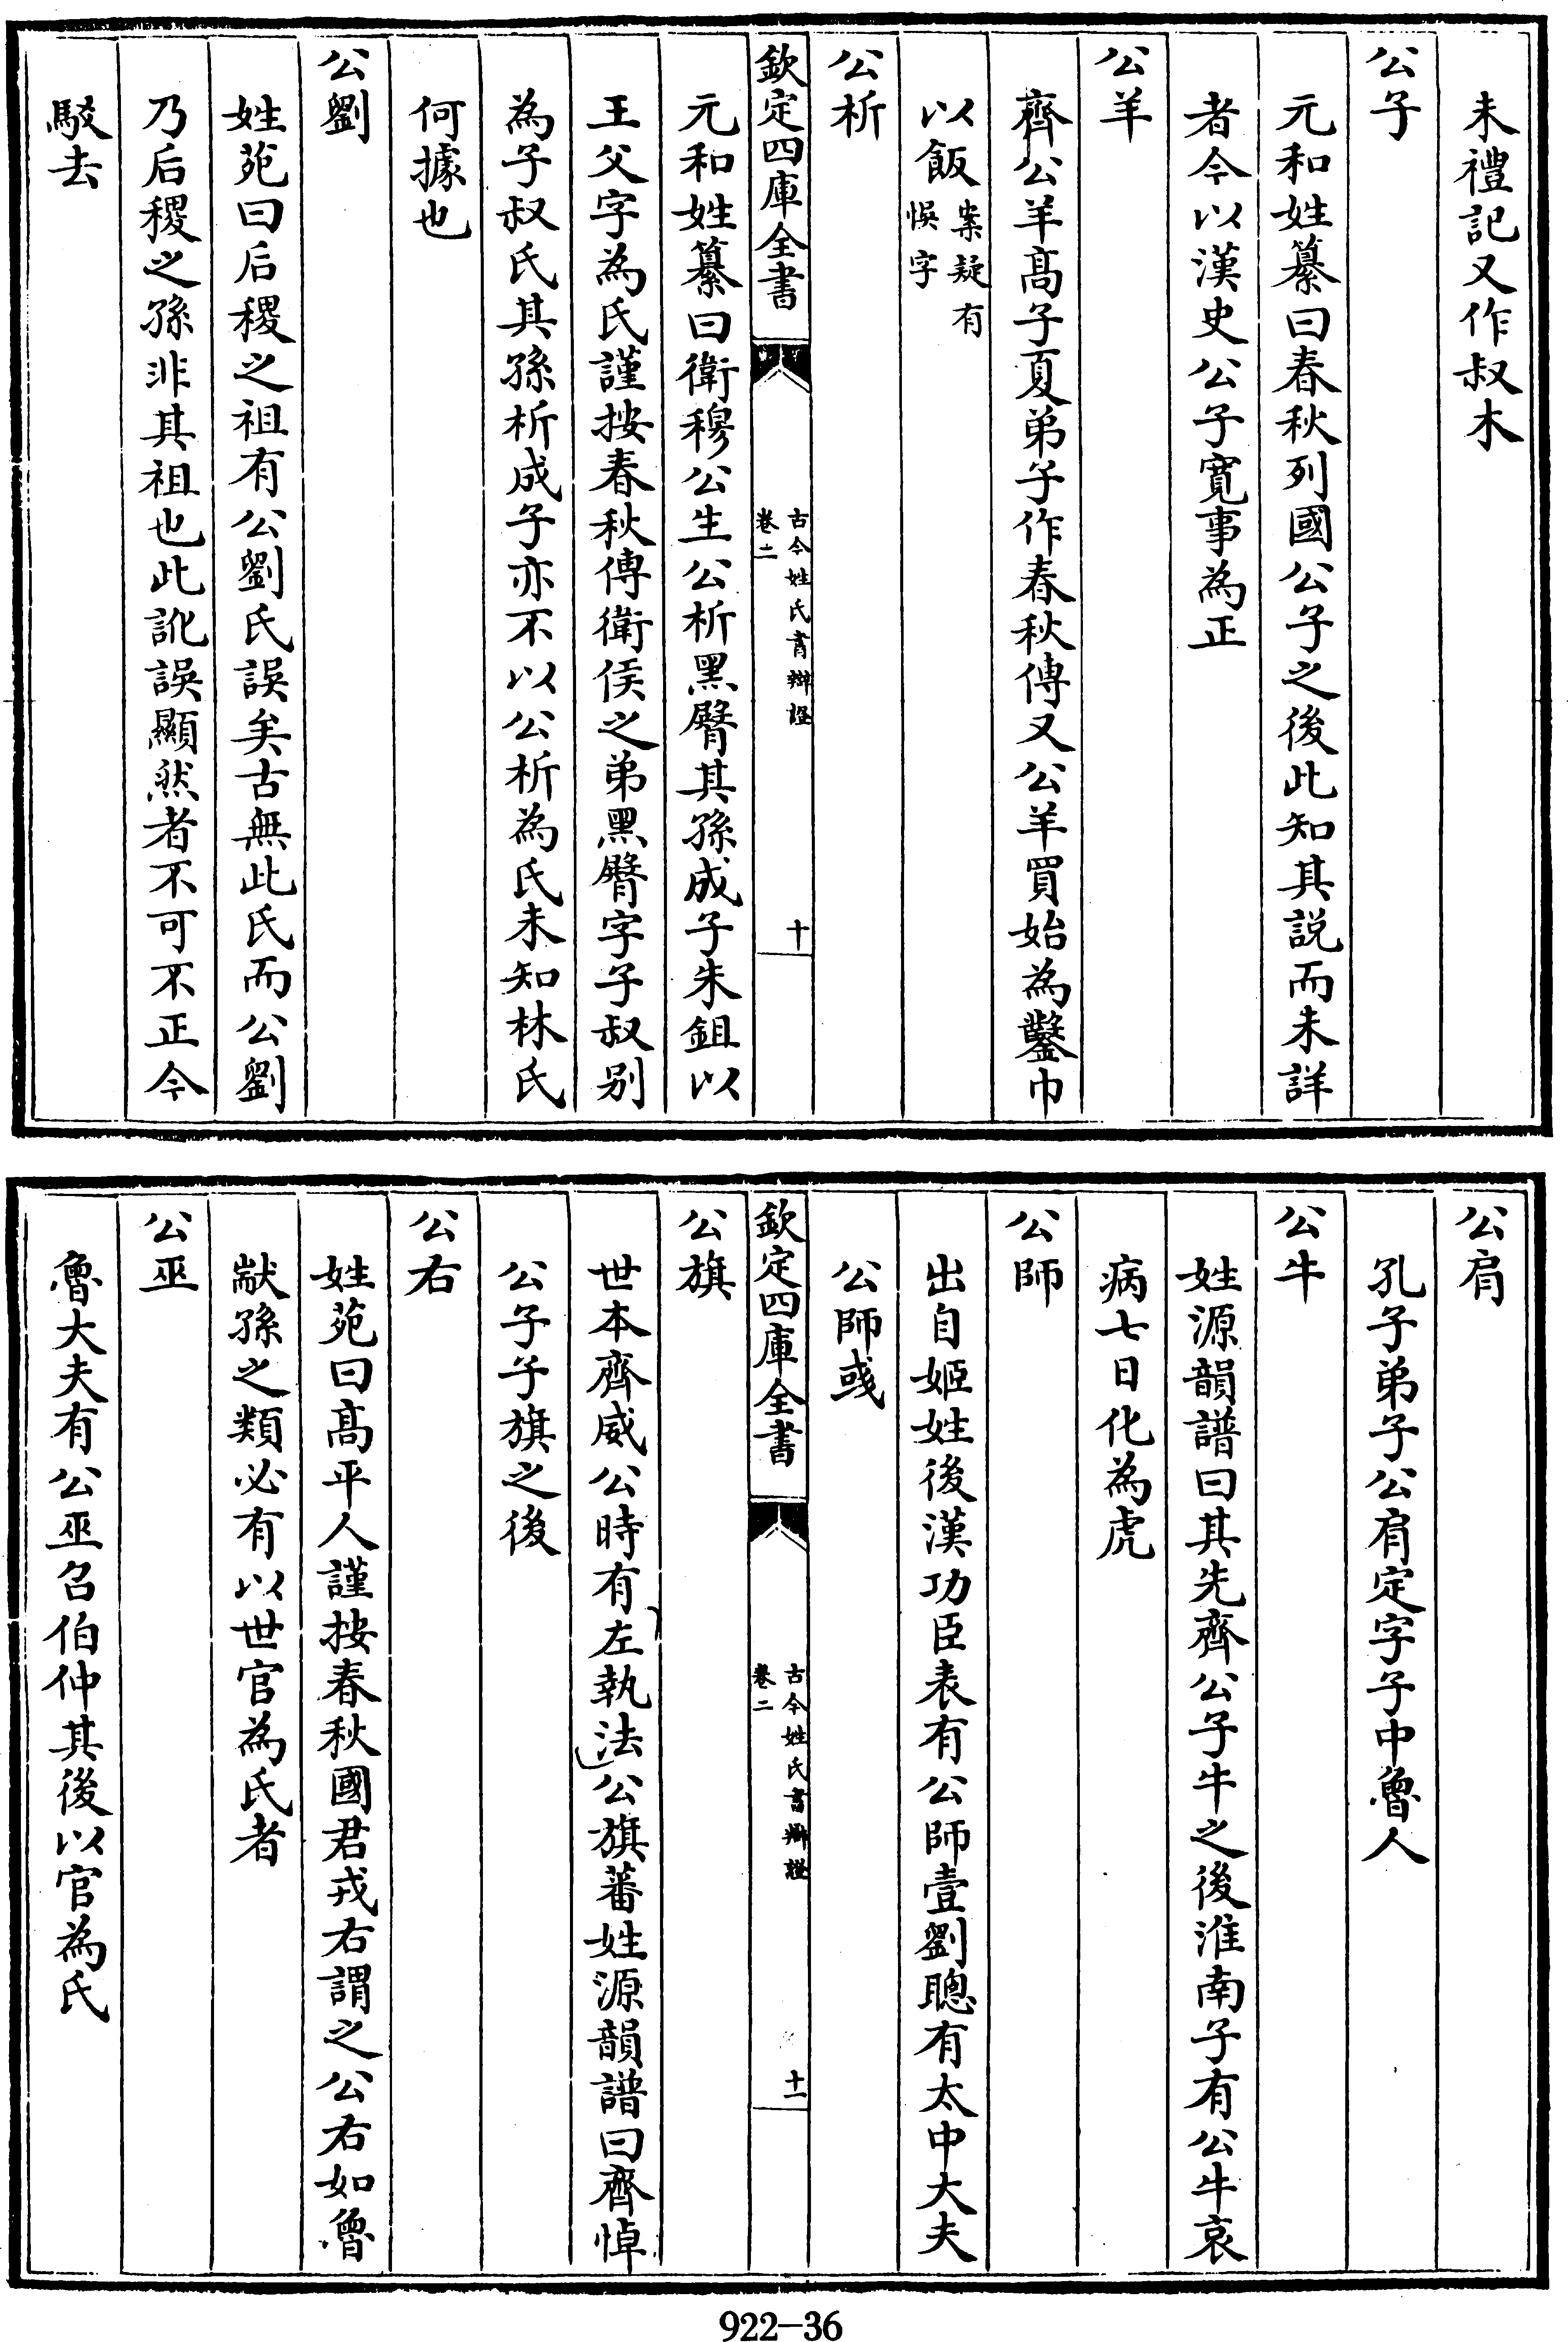 未禮記又作叔木
公子
元和姓纂曰春秋列國公子之後此知其説而未詳
者今以漢史公子寛事為正
公羊
齊公羊髙子夏弟子作春秋傳又公羊買始為鑿巾
以飯案疑有悞字
公析
欽定四庫全書
古今姓氏書辯證
卷二
十
元和姓纂曰衛穆公生公析黑臀其孫成子朱鉏以
王父字為氏謹按春秋傳衛侯之弟黑臀字子叔别
為子叔氏其孫析成子亦不以公析為氏未知林氏
何據也
公劉
姓苑曰后稷之祖有公劉氏誤矣古無此氏而公劉
乃后稷之孫非其祖也此訛誤顯然者不可不正今
駁去
公肩
孔子弟子公肩定字子中魯人
公牛
姓源韻譜曰其先齊公子牛之後淮南子有公牛哀
病七日化為虎
公師
出自姬姓後漢功臣表有公師壹劉聰有太中大夫
公師彧
欽定四庫全書
古今姓氏書辯證
卷二
十一
公旗
世本齊威公時有左執法公旗蕃姓源韻譜曰齊悼
公子子旗之後
公右
姓苑曰髙平人謹按春秋國君戎右謂之公右如魯
獻孫之類必有以世官為氏者
公巫
魯大夫有公巫召伯仲其後以官為氏
922-36